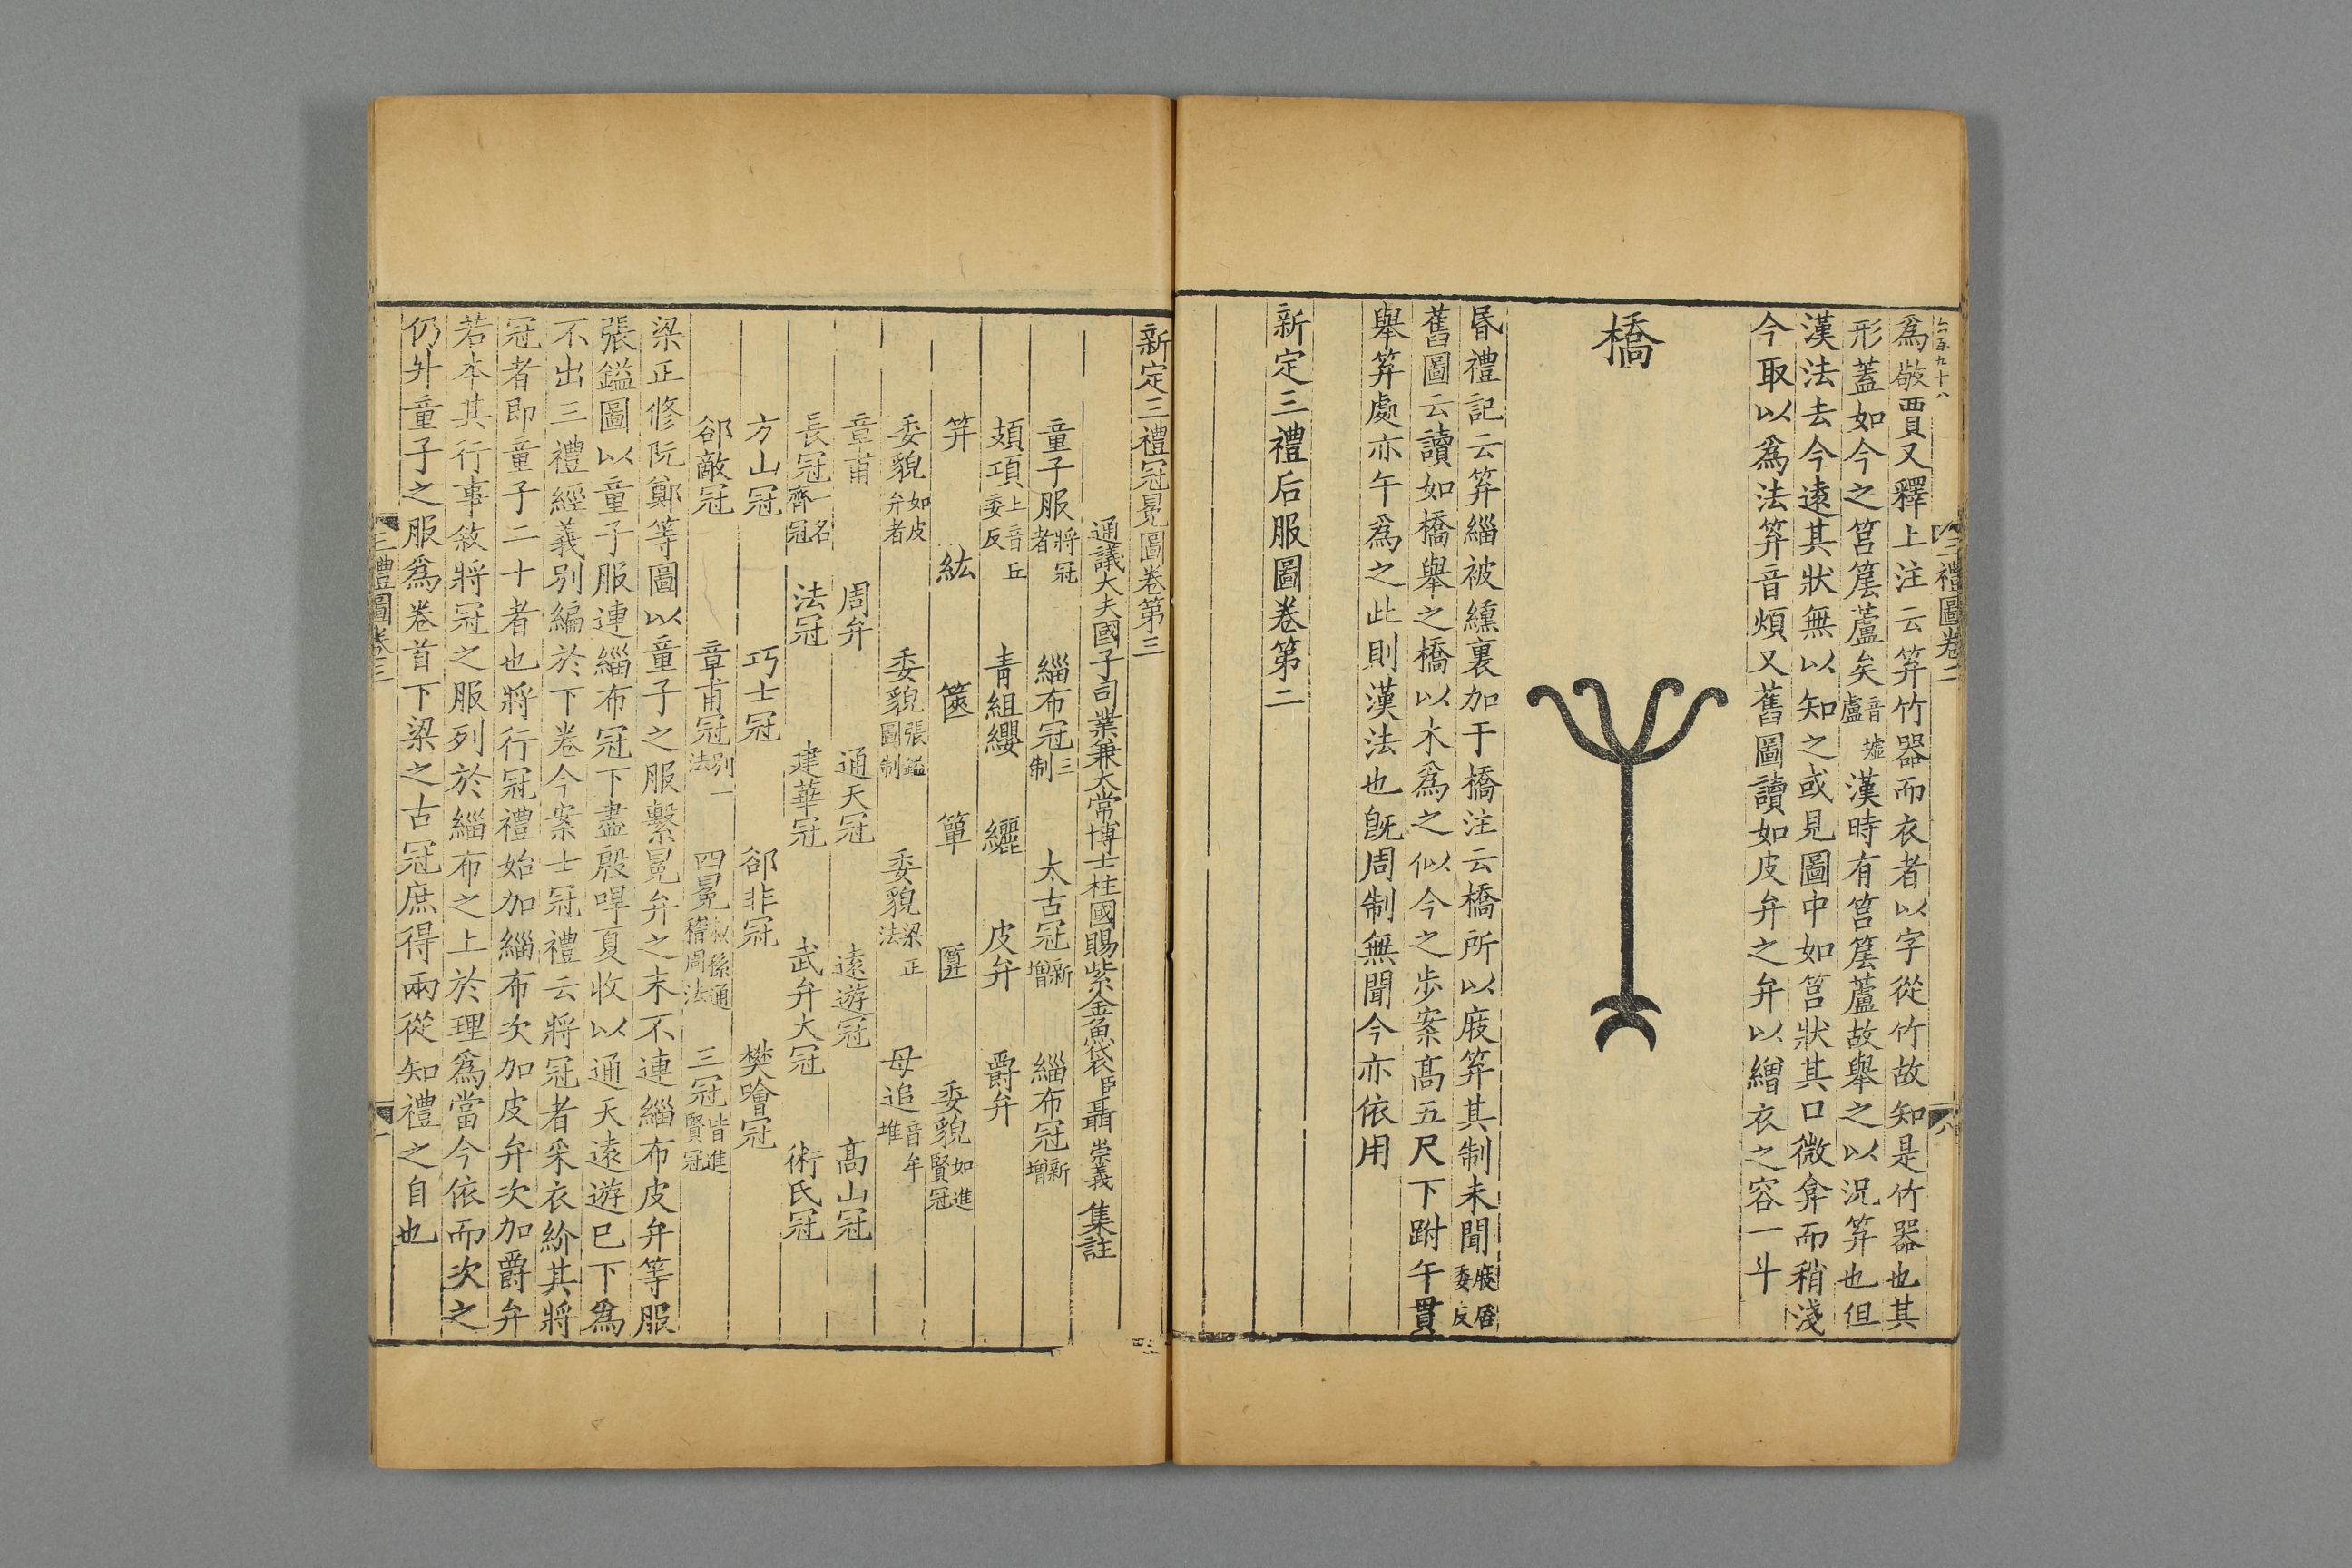 六百九十八
三禮圖卷二
八
爲敬賈又釋上注云笲竹器而衣者以字從竹故知是竹器也其
形蓋如今之筥𥬔蘆矣音墟盧漢時有筥𥬔蘆故舉之以況笲也但
漢法去今遠其狀無以知之或見圖中如筥狀其口微弇而稍淺
今取以爲法笲音煩又舊圖讀如皮弁之弁以繒衣之容一斗
橋
昬禮記云笲緇被纁裏加于橋注云橋所以庪笲其制未聞庪居委反
舊圖云讀如橋舉之橋以木爲之似今之步案高五尺下跗午貫
舉笲處亦午爲之此則漢法也旣周制無聞今亦依用
新定三禮后服圖卷第二
新定三禮冠冕圖卷第三
通議大夫國子司業兼太常博士柱國賜紫金魚袋臣聶崇義集註
童子服將冠者 緇布冠三制 太古冠新增 緇布冠新增
頍項上音丘委反 青組纓 纚 皮弁 爵弁
笄 紘 篋 簞 匴 委貌如進賢冠
委貌如皮弁者 委貌張鎰圖制 委貌梁正法 毋追音牟堆
章甫 周弁 通天冠 遠遊冠 高山冠
長冠一名齊冠 法冠 建華冠 武弁大冠 術氏冠
方山冠 巧士冠 郤非冠 樊噲冠
郤敵冠 章甫冠別一法 四冕叔孫通稽周法 三冠皆進賢冠
梁正修阮鄭等圖以童子之服繫冕弁之末不連緇布皮弁等服
張鎰圖以童子服連緇布冠下盡殷哻夏收以通天遠遊已下爲
不出三禮經義別編於下卷今案士冠禮云將冠者采衣紒其將
冠者即童子二十者也將行冠禮始加緇布次加皮弁次加爵弁
若本其行事敘將冠之服列於緇布之上於理爲當今依而次之
仍升童子之服爲卷首下梁之古冠庶得兩從知禮之自也
三禮圖卷三
一